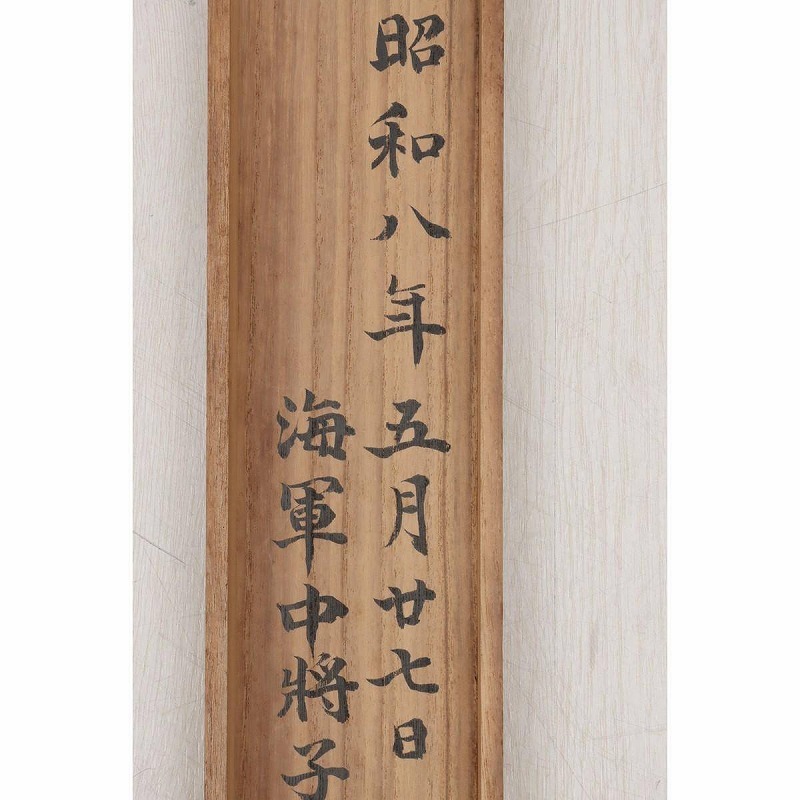 昭和八年五月廿七日
海軍中将子